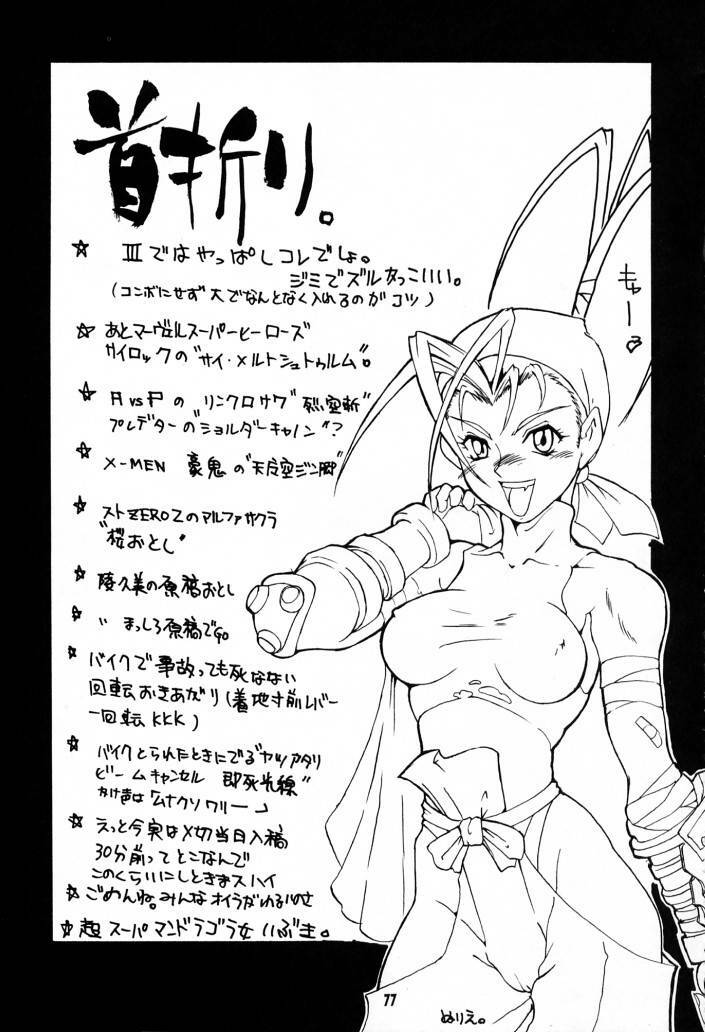 首折り。
☆ Ⅲではやっぱしコレでしょ。
ジミでズルかっこいい。
(コンボにせず大でなんとなく入れるのがコツ)
☆ あとマーヴェルスーパーヒーローズ
サイロックの"サイ・メルトシュトゥルム"。
☆ AvsPの リンクロサワ"死空斬"
プレデターの"ショルダーキャノン"?
☆ X-MEN 豪鬼の"天魔空ジン脚"
☆ ストZERO2のマルファサクラ
"桜おとし"
☆ 陵久美の原稿おとし
☆ 〃 まっしろ原稿でGO
☆ バイクで事故っても死なない
回転おきあがり(着地寸前レバー
一回転KKK)
☆ バイクとられたときにでる"ヤツアタリ
ビームキャンセル 即死光線"
かけ声は「ムナクソワリー」
☆ えっと今実は〆切当日入稿
30分前ってとこなんで
このくらいにしときまスハイ
☆ ごめんね。みんなオイラがわるい
☆ 超スーパーマンドラゴラ女いぶき。
キャー
77
ぬりえ。